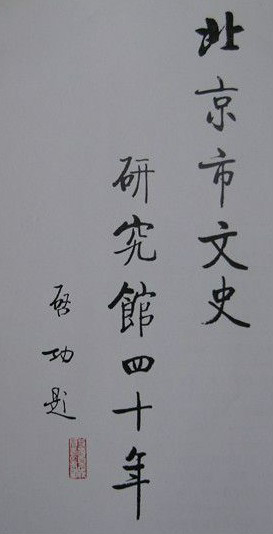 北京市文史
研究館四十年
啓功題